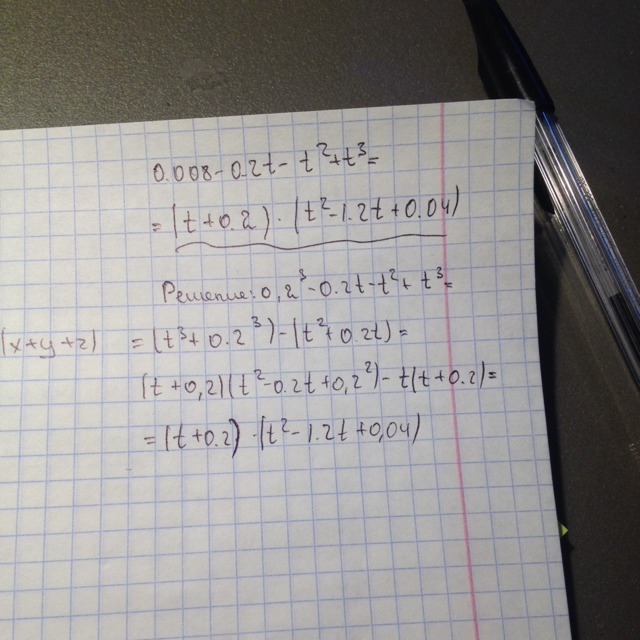 0.008-0.2t-t²+t³=
=(t+0.2)·(t²-1.2t+0.04)
Решение: 0,2³-0.2t-t²+t³=
(x+y+z) =(t³+0.2³)-(t²+0.2t)=
(t+0,2)(t²-0.2t+0,2²)-t(t+0.2)=
=(t+0.2)·(t²-1.2t+0,04)